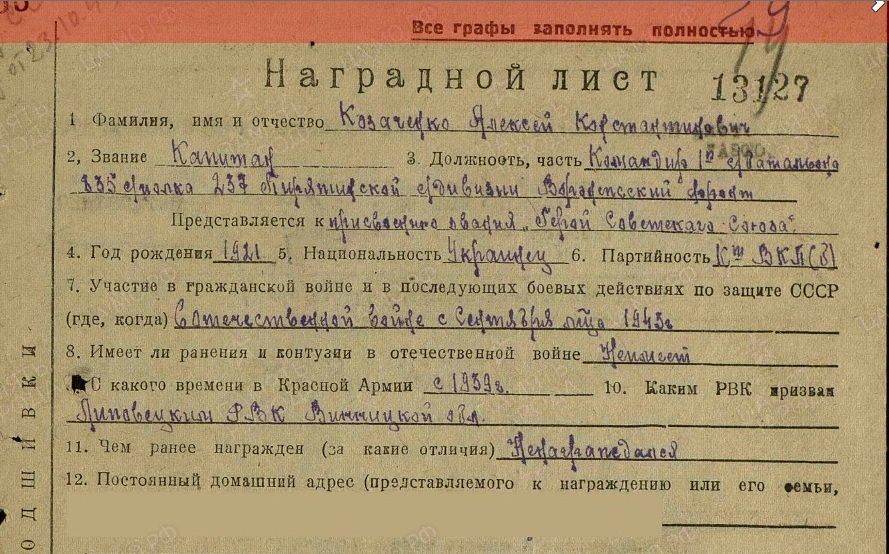 Все графы заполнять полностью
Наградной лист 13127
1 Фамилия, имя и отчество Козаченко Алексей Константинович
2, Звание Капитан 3. Должность, часть Командир 1го батальона
835 сполка 237 Пирятинской сдивизии Воронежский фронт
Представляется к присвоению звания „Герой Советского Союза"
4. Год рождения 1921 5. Национальность Украинец 6. Партийность Кт ВКП(б)
7. Участие в гражданской войне и в последующих боевых действиях по защите СССР
(где, когда) В отечественной войне с Сентября м-ца 1943г
8. Имеет ли ранения и контузии в отечественной войне Неимеет
С какого времени в Красной Армии с 1939г. 10. Каким РВК призван
Липовецким РВК Винницкой обл.
11. Чем ранее награжден (за какие отличия) Ненаграждался
12. Постоянный домашний адрес (представляемого к награждению или его семьи,
ОДШИВКИ